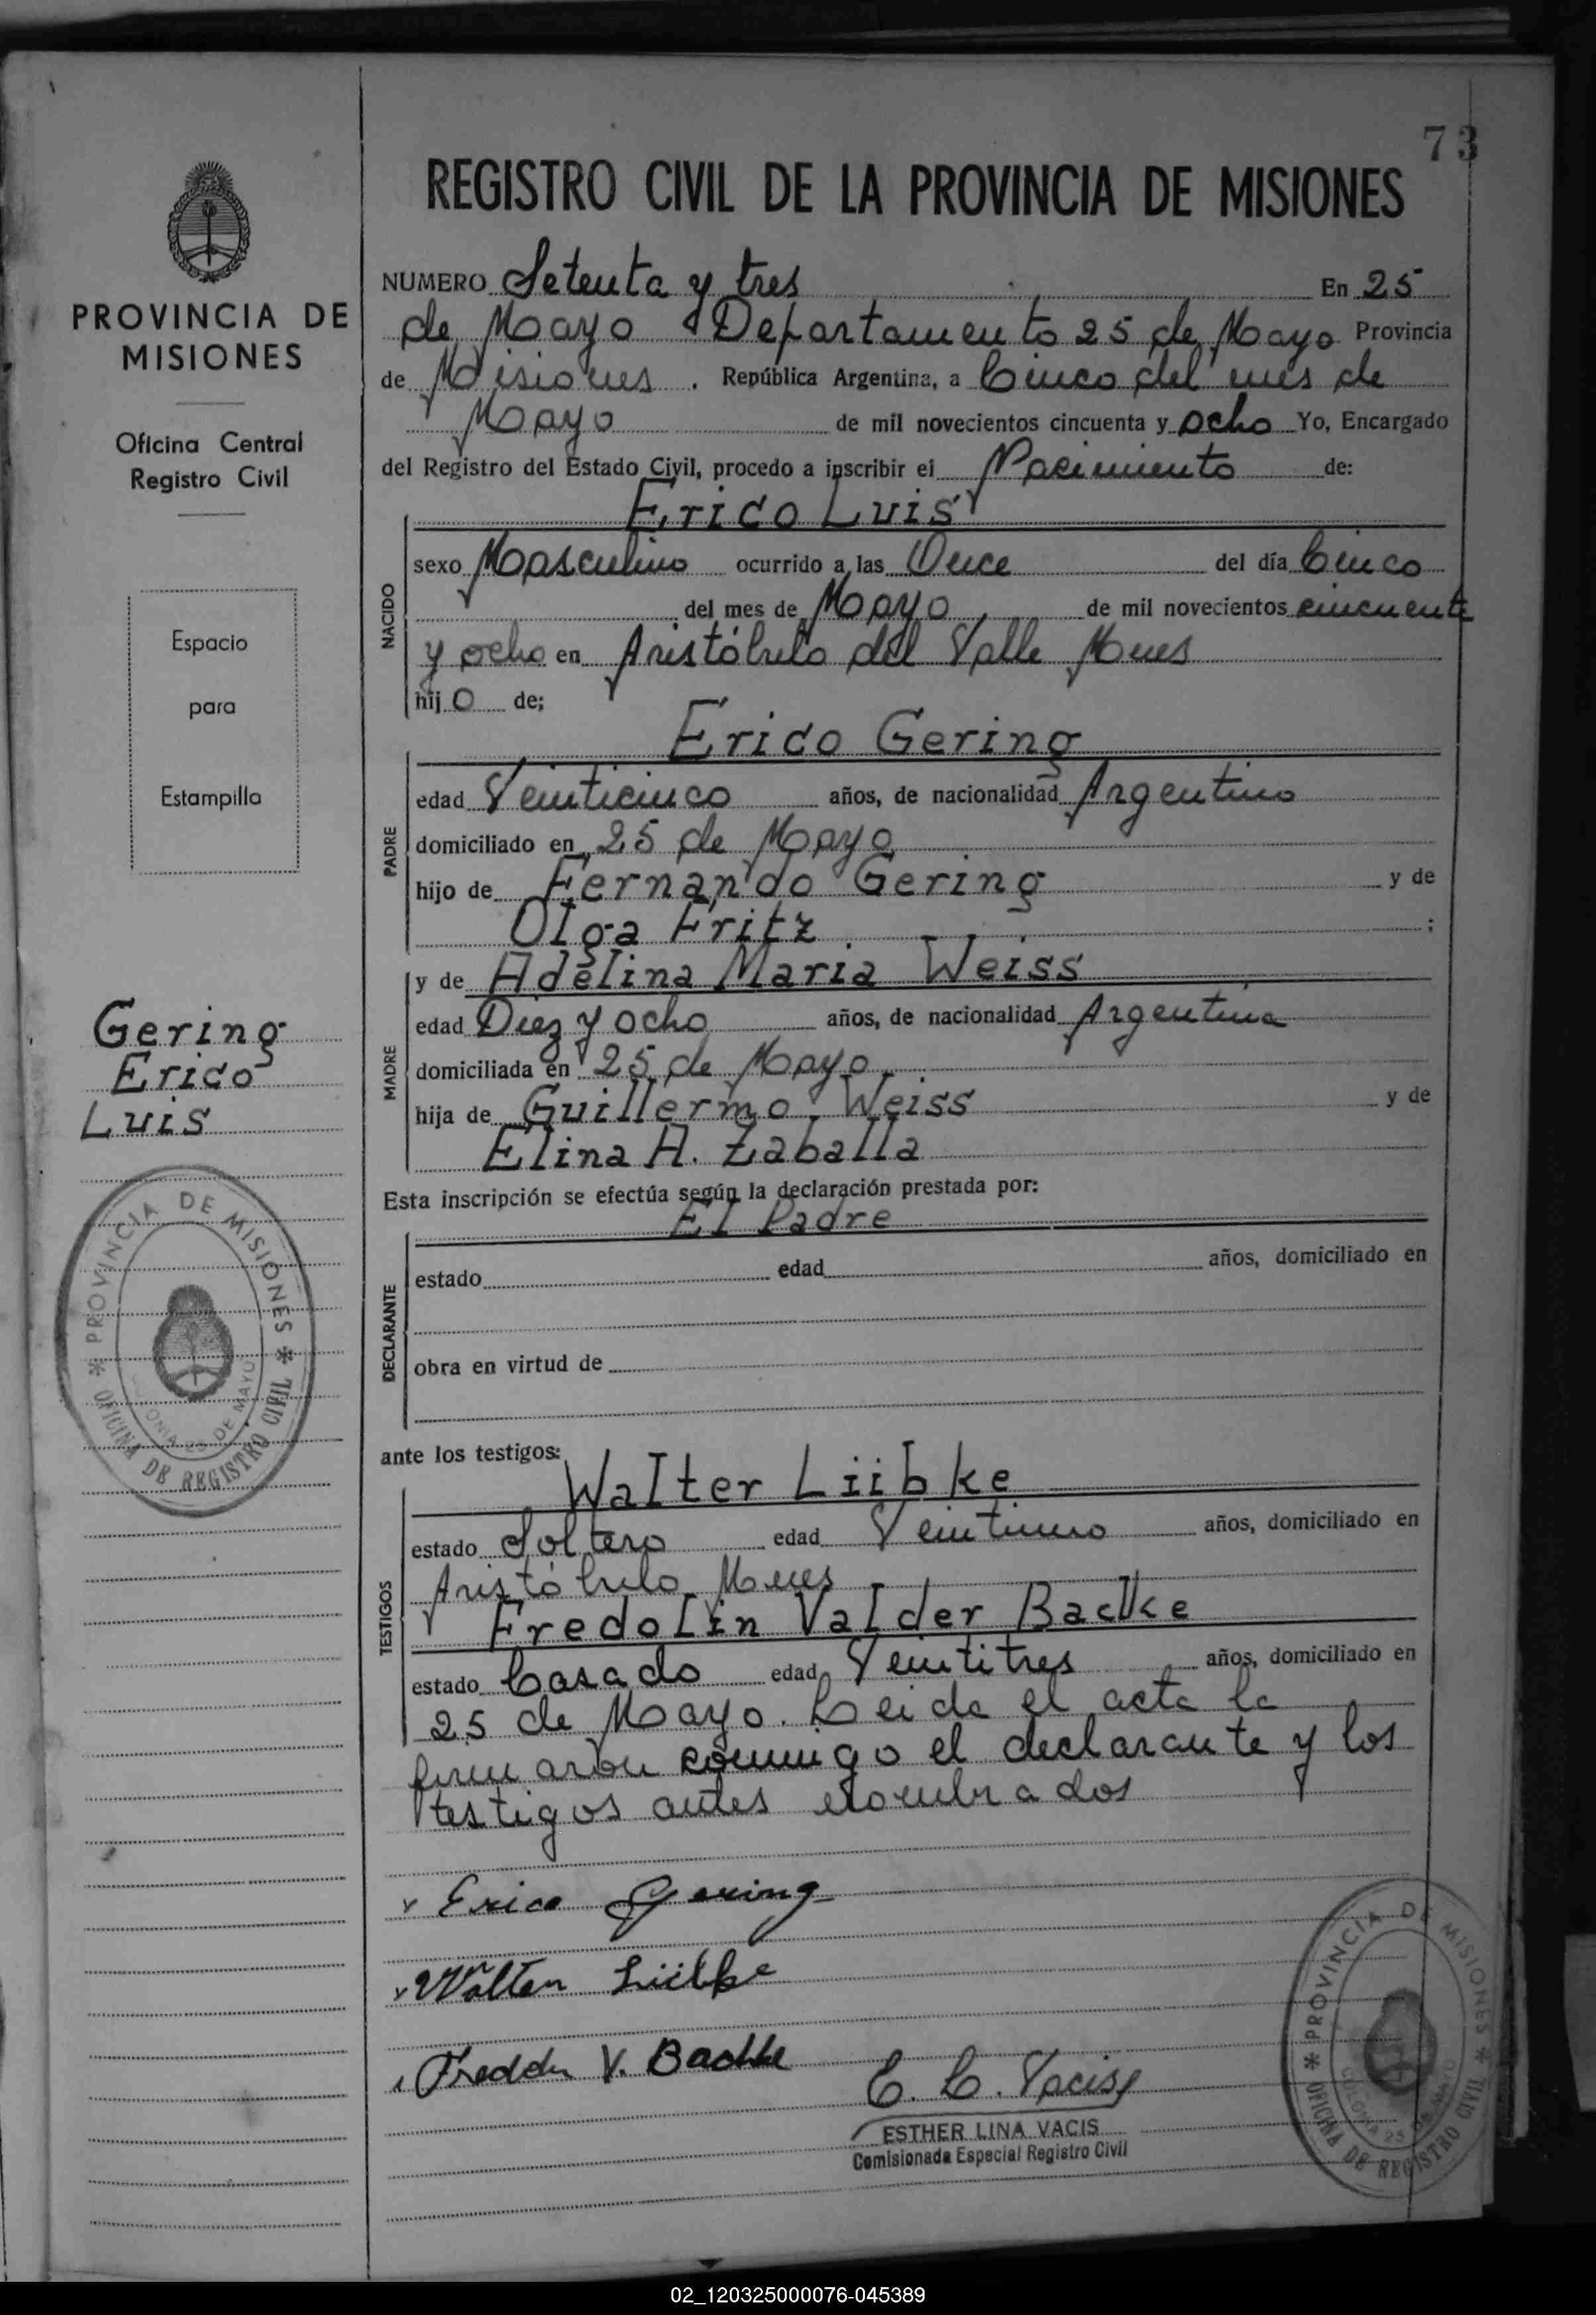 73
REGISTRO CIVIL DE LA PROVINCIA DE MISIONES
PROVINCIA DE
MISIONES
Oficina Central
Registro Civil
Espacio
para
Estampilla
Gering
Erico
Luis
PROVINCIA DE MISIONES * OFICINA DE REGISTRO CIVIL *
COLONIA 25 DE MAYO
NUMERO Setenta y tres En 25
de Mayo Departamento 25 de Mayo Provincia
de Misiones . República Argentina, a Cinco del mes de
Mayo de mil novecientos cincuenta y ocho Yo, Encargado
del Registro del Estado Civil, procedo a inscribir el Nacimiento de:
Erico Luis
NACIDO
sexo Masculino ocurrido a las Once del día Cinco
del mes de Mayo de mil novecientos cincuenta
y ocho en Aristóbulo del Valle Mnes
hijo de;
Erico Gering
PADRE
edad Veinticinco años, de nacionalidad Argentino
domiciliado en 25 de Mayo
hijo de Fernando Gering y de
Olga Fritz ;
y de Adelina Maria Weiss
MADRE
edad Diez y ocho años, de nacionalidad Argentina
domiciliada en 25 de Mayo
hija de Guillermo Weiss y de
Elina A. Zaballa
Esta inscripción se efectúa según la declaración prestada por:
El Padre
DECLARANTE
estado edad años, domiciliado en
obra en virtud de
ante los testigos:
Walter Liibke
TESTIGOS
estado Soltero edad Veintiuno años, domiciliado en
Aristóbulo Mnes
Fredolin Valder Backe
estado Casado edad Veintitres años, domiciliado en
25 de Mayo. Leida el acta la
firmaron conmigo el declarante y los
testigos antes nombrados
Erico Gering
Walter Lübke
V.
E. L. Vacis
ESTHER LINA VACIS
Comisionada Especial Registro Civil
PROVINCIA DE MISIONES * OFICINA DE REGISTRO CIVIL *
COLONIA 25 DE MAYO
02_120325000076-045389